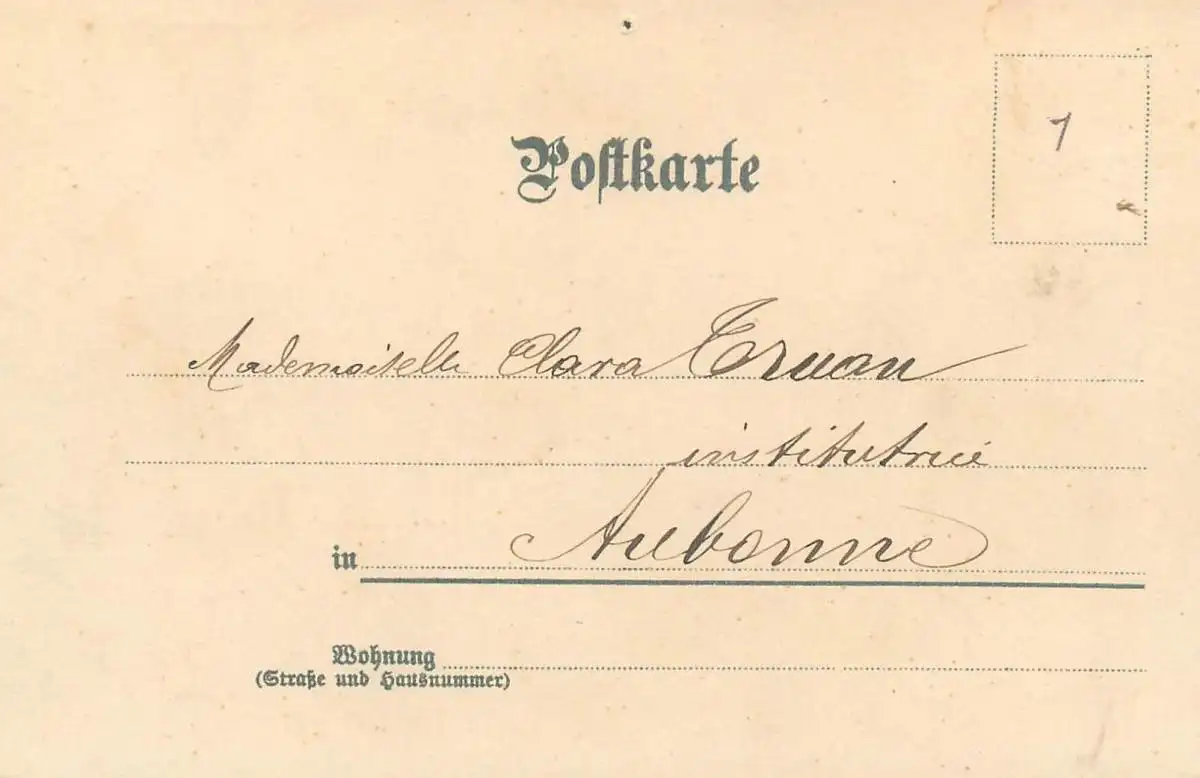 Postkarte
1
Mademoiselle Clara Truan
institutrice
in Aubonne
Wohnung
(Straße und Hausnummer)